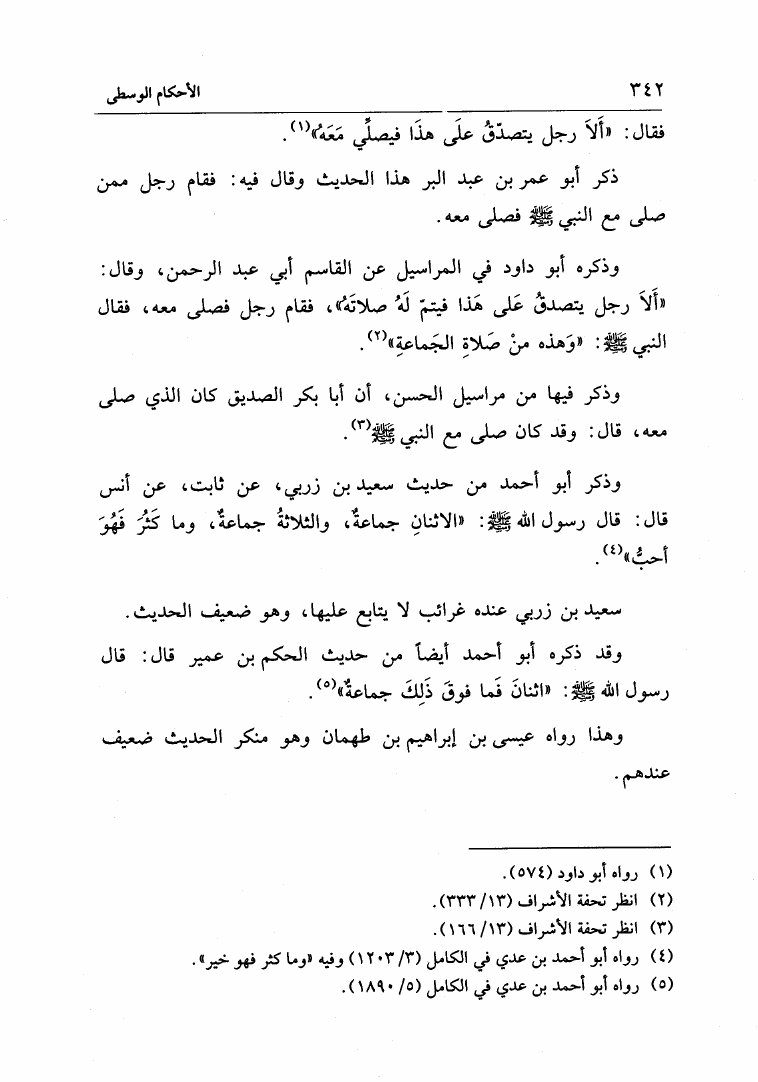 ٣٤٢ الأحكام الوسطى
فقال: «أَلاَ رجل يتصدّقُ علَى هذَا فيصلِّي مَعَهُ»(١).
ذكر أبو عمر بن عبد البر هذا الحديث وقال فيه: فقام رجل ممن
صلى مع النبي ﷺ فصلى معه.
وذكره أبو داود في المراسيل عن القاسم أبي عبد الرحمن، وقال:
«أَلاَ رجل يتصدقُ عَلى هَذا فيتمّ لَهُ صلاتَهُ»، فقام رجل فصلى معه، فقال
النبي ﷺ: «وَهذه منْ صَلاةِ الجَماعةِ»(٢).
وذكر فيها من مراسيل الحسن، أن أبا بكر الصديق كان الذي صلى
معه، قال: وقد كان صلى مع النبي ﷺ(٣).
وذكر أبو أحمد من حديث سعيد بن زربي، عن ثابت، عن أنس
قال: قال رسول الله ﷺ: «الاثنانِ جماعةٌ، والثلاثةُ جماعةٌ، وما كَثُرَ فَهُوَ
أحبُّ»(٤).
سعيد بن زربي عنده غرائب لا يتابع عليها، وهو ضعيف الحديث.
وقد ذكره أبو أحمد أيضاً من حديث الحكم بن عمير قال: قال
رسول الله ﷺ: «اثنانَ فَما فوقَ ذَلِكَ جماعةٌ»(٥).
وهذا رواه عيسى بن إبراهيم بن طهمان وهو منكر الحديث ضعيف
عندهم.
(١) رواه أبو داود (٥٧٤).
(٢) انظر تحفة الأشراف (١٣/ ٣٣٣).
(٣) انظر تحفة الأشراف (١٣/ ١٦٦).
(٤) رواه أبو أحمد بن عدي في الكامل (٣/ ١٢٠٣) وفيه «وما كثر فهو خير».
(٥) رواه أبو أحمد بن عدي في الكامل (٥/ ١٨٩٠).